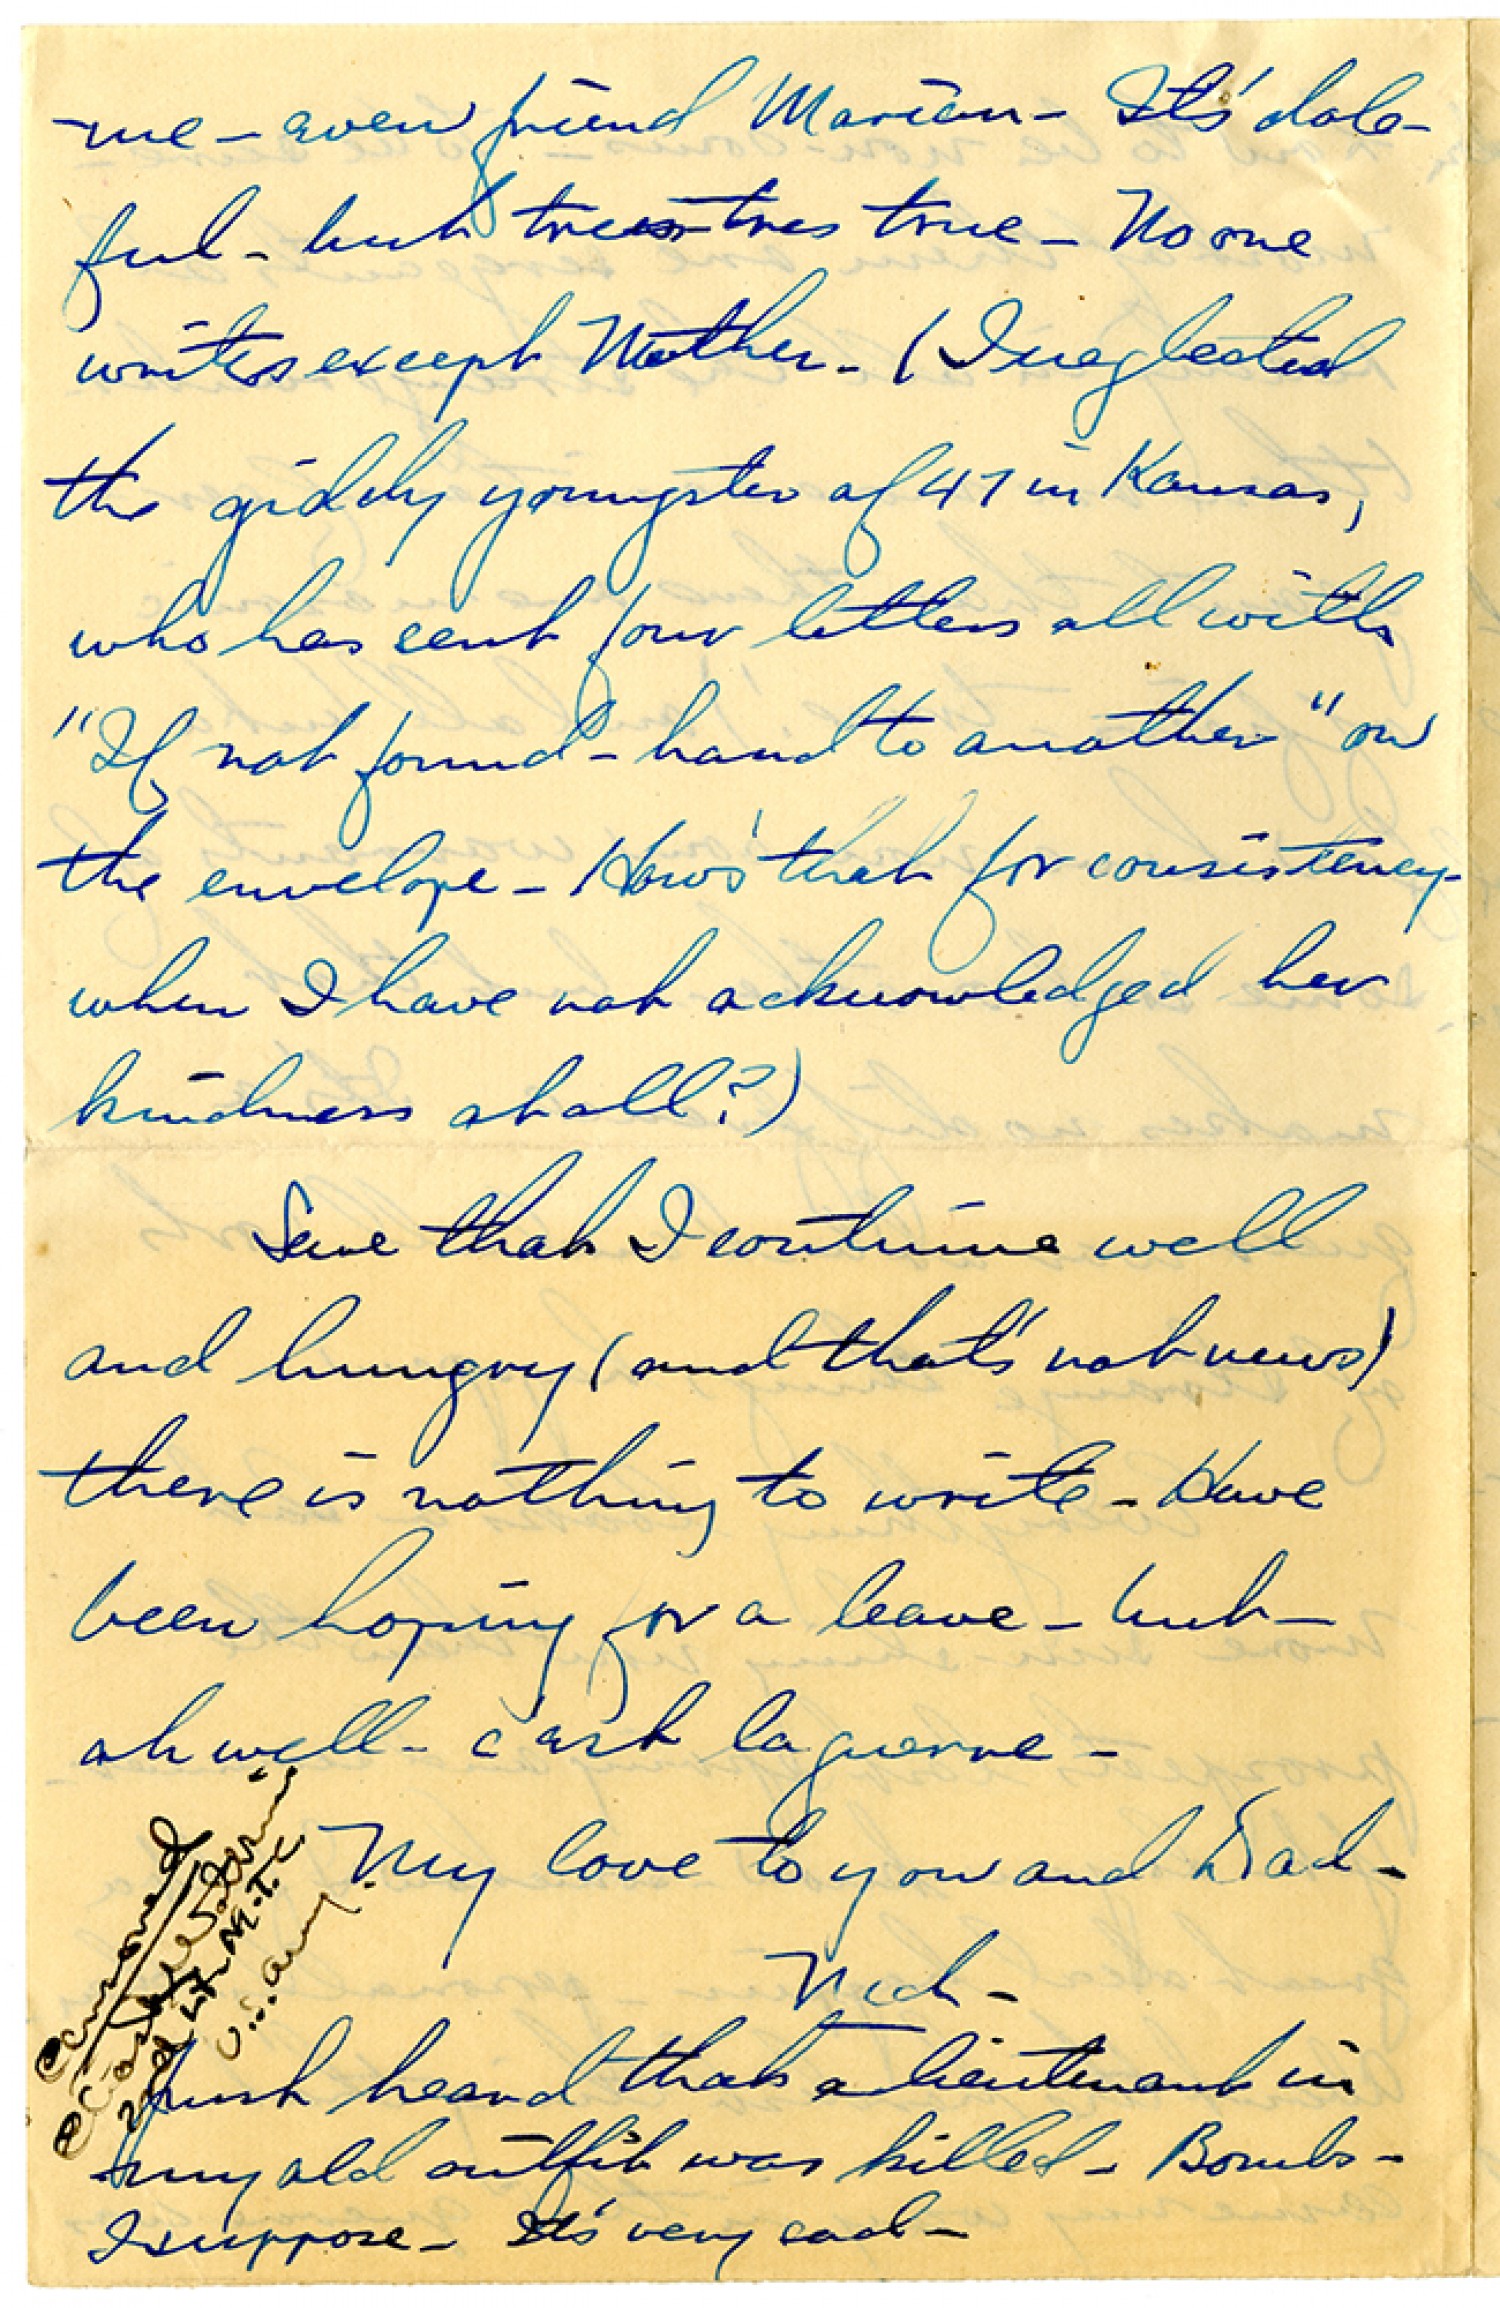 me – even friend Marian – It's dole-
ful – but tres tres true – No one
writes except Mother – (I neglected
the giddy youngster of 47 in Kansas,
who has sent four letters all with
"If not found – hand to another" on
the envelope – How's that for consistency –
when I have not acknowledged her
kindness at all?)
Save that I continue well
and hungry (and that's not news)
there is nothing to write – Have
been hoping for a leave – but –
ah well – c'est la guerre –
My love to you and Dad –
Ned –
Just heard that a lieutenant in
my old outfit was killed – Bombs –
I suppose – It's very sad –
Censored
2nd Lt. M.T.C.
U.S. Army.